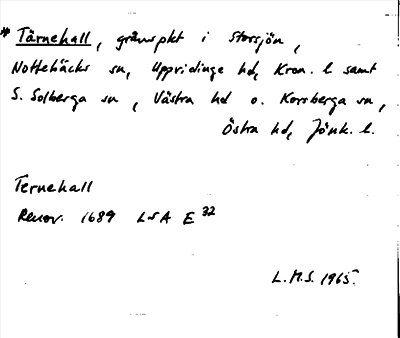 * Tärnehall, gränspkt i Storsjön,
Nottebäcks sn, Uppvidinge hd, Kron. l samt
S. Solberga sn, Västra hd o. Korsberga sn,
Östra hd, Jönk. l.
Ternehall
Renov. 1689 LSA E 32
L.M.S. 1965.